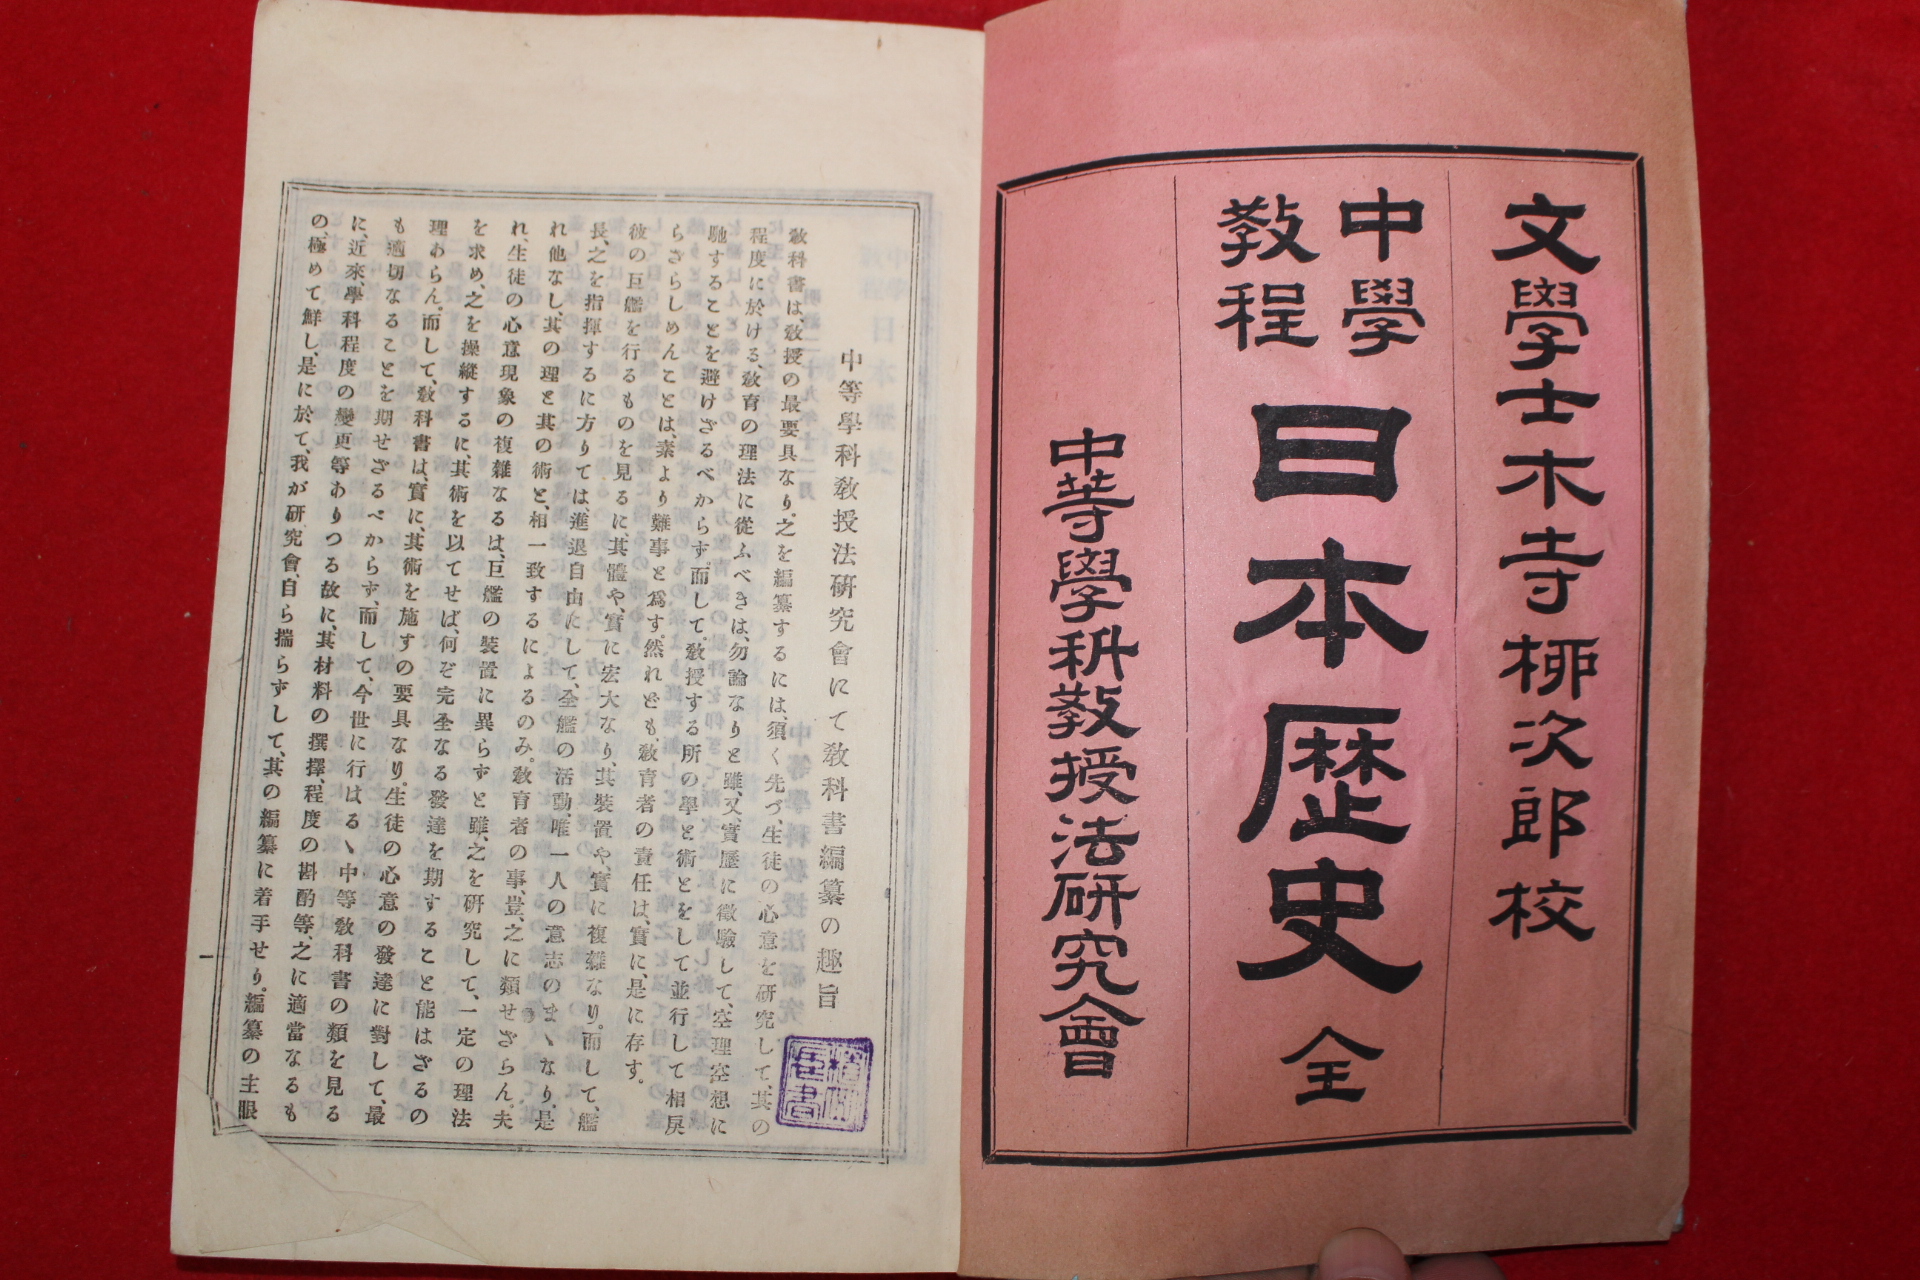 文學士木寺柳次郎校
中學
敎程
日本歴史 全
中等學科敎授法研究會
中等學科敎授法研究會にて敎科書編纂の趣旨
敎科書は、敎授の最要具なり。之を編纂するには、須く先づ、生徒の心意を研究して、其の
程度に於ける、敎育の理法に從ふべきは、勿論なりと雖、又、實歷に徵驗して、空理空想に
馳することを避けざるべからず。而して、敎授する所の學と術とをして並行して相戾
らざらしめんことは、素より難事と爲す。然れども、敎育者の責任は、實に、是に存す。
彼の巨艦を行るものを見るに、其體や、實に宏大なり、其裝置や、實に複雜なり。而して、艦
長、之を指揮するに方りては、進退自由にして、全艦の活動、唯一人の意志のまゝなり、是
れ他なし、其の理と其の術と、相一致するによるのみ。敎育者の事、豈、之に類せざらん。夫
れ、生徒の心意現象の複雜なるは、巨艦の裝置に異らずと雖、之を研究して、一定の理法
を求め、之を操縱するに、其術を以てせば、何ぞ完全なる發達を期すること能はざるの
理あらん。而して、敎科書は、實に、其術を施すの要具なり。生徒の心意の發達に對して、最
も適切なることを期せざるべからず、而して、今世に行はるゝ中等敎科書の類を見る
に、近來、學科程度の變更等ありつる故に、其材料の撰擇、程度の斟酌等、之に適當なるも
の、極めて鮮し、是に於て、我が硏究會、自ら揣らずして、其の編纂に着手せり。編纂の主眼
一